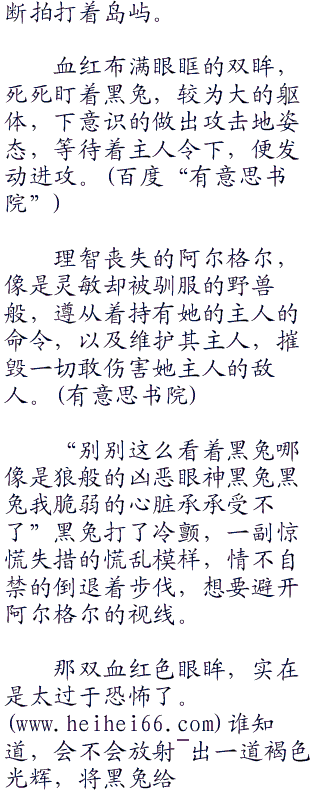 断拍打着岛屿。
血红布满眼眶的双眸，
死死盯着黑兔，较为大的躯
体，下意识的做出攻击地姿
态，等待着主人令下，便发
动进攻。(百度“有意思书
院”)
理智丧失的阿尔格尔，
像是灵敏却被驯服的野兽
般，遵从着持有她的主人的
命令，以及维护其主人，摧
毁一切敢伤害她主人的敌
人。(有意思书院)
“别别这么看着黑兔哪
像是狼般的凶恶眼神黑兔黑
兔我脆弱的心脏承承受不
了”黑兔打了冷颤，一副惊
慌失措的慌乱模样，情不自
禁的倒退着步伐，想要避开
阿尔格尔的视线。
那双血红色眼眸，实在
是太过于恐怖了。
(www.heihei66.com)谁知
道，会不会放射¯出一道褐色
光辉，将黑兔给